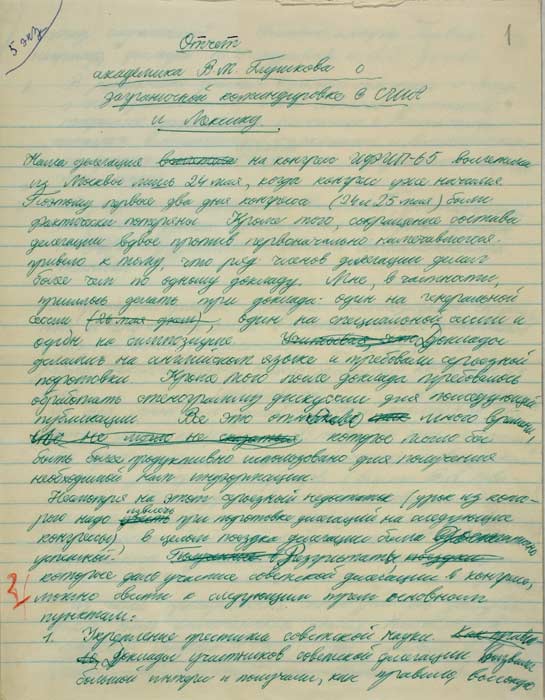 5 экз
1
Отчет
академика В.М. Глушкова о
заграничной командировке в США
и Мексику
Наша делегация на конгресс ИФИП-65 вылетела
из Москвы лишь 24 мая, когда конгресс уже начался
Поэтому первые два дня конгресса (24 и 25 мая) были
фактически потеряны Кроме того, сокращение состава
делегации вдвое против первоначально намечавшегося
привело к тому, что ряд членов делегации делал
более чем по одному докладу. Мне, в частности,
пришлось делать три доклада: один на генеральной
сессии (26 мая днем), один на специальной сессии и
один на симпозиуме. Доклады
делались на английском языке и требовали серьезной
подготовки. Кроме того после доклада требовалось
обработать стенограмму дискуссии для последующей
публикации Все это отнимало много времени,
что не могло не сказаться, которое могло бы
быть более продуктивно использовано для получения
необходимой нам информации.
Несмотря на этот серьезный недостаток (урок из кото-
рого надо извлечь при подготовке делегаций на следующие
конгрессы) в целом поездка делегации была
успешной. Результаты, поездки
которые дало участие советской делегации в конгрессе,
можно свести к следующим трем основным
пунктам:
3
1. Укрепление престижа советской науки Как правило
Доклады участников советской делегации вызвали
большой интерес и получили, как правило, высокую